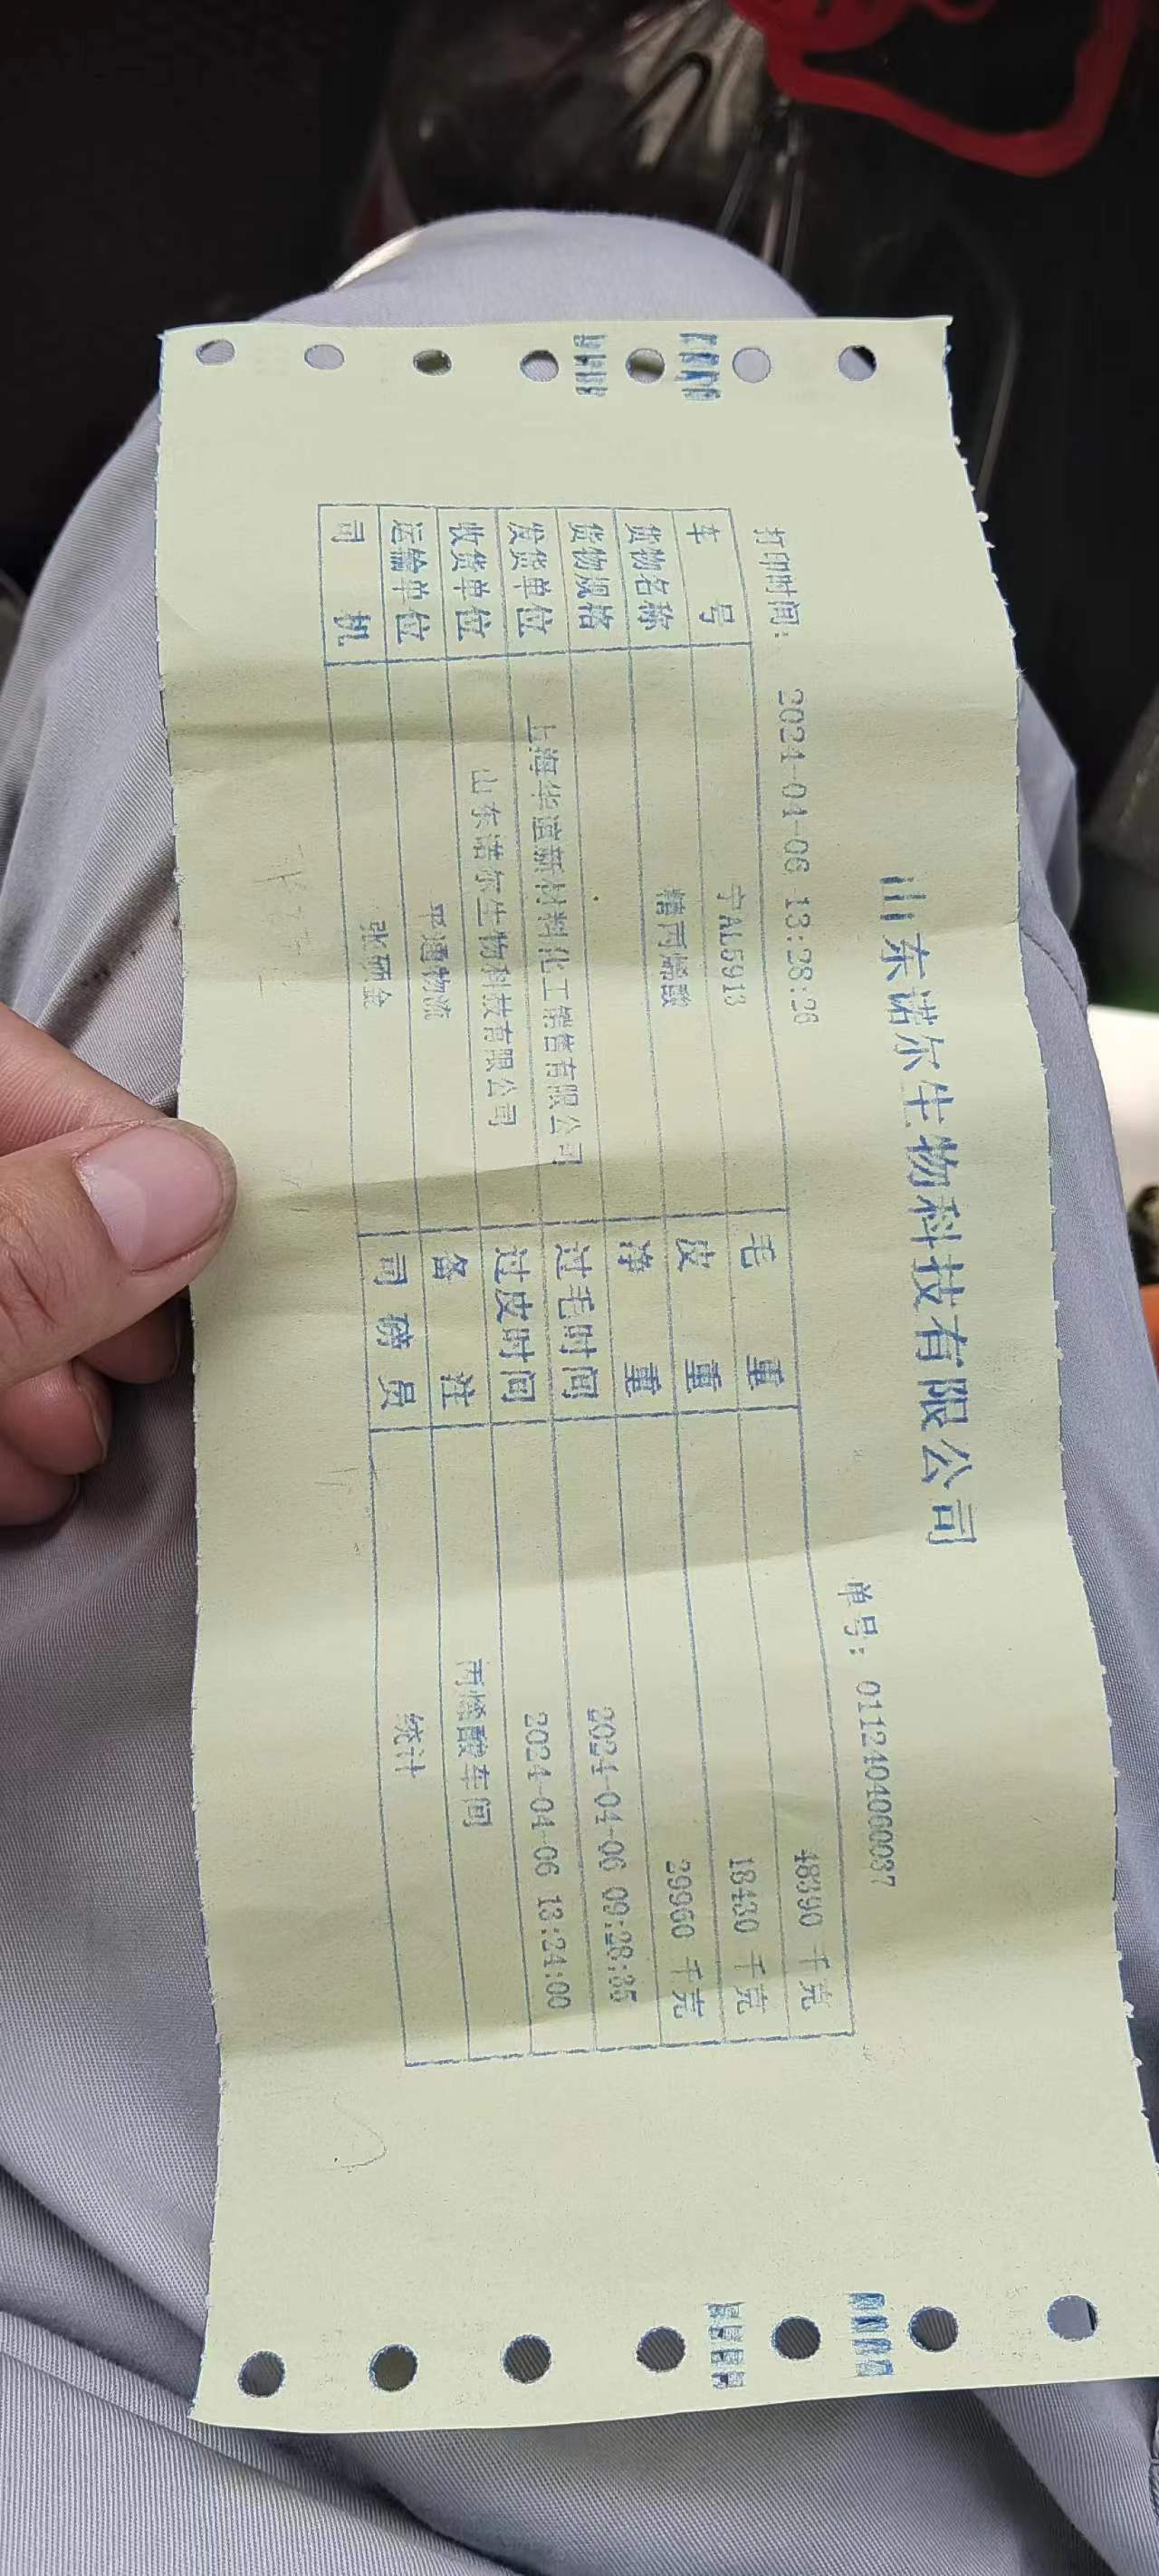 山东诺尔生物科技有限公司
打印时间： 2024-04-06 13:28:26 单号：01124040600037
车号 宁AL5913 毛重 48390 千克
货物名称 精丙烯酸 皮重 18430 千克
货物规格 净重 29960 千克
发货单位 上海华谊新材料化工销售有限公司 过毛时间 2024-04-06 09:28:35
收货单位 山东诺尔生物科技有限公司 过皮时间 2024-04-06 13:24:00
运输单位 平通物流 备注 丙烯酸车间
司机 司磅员 统计